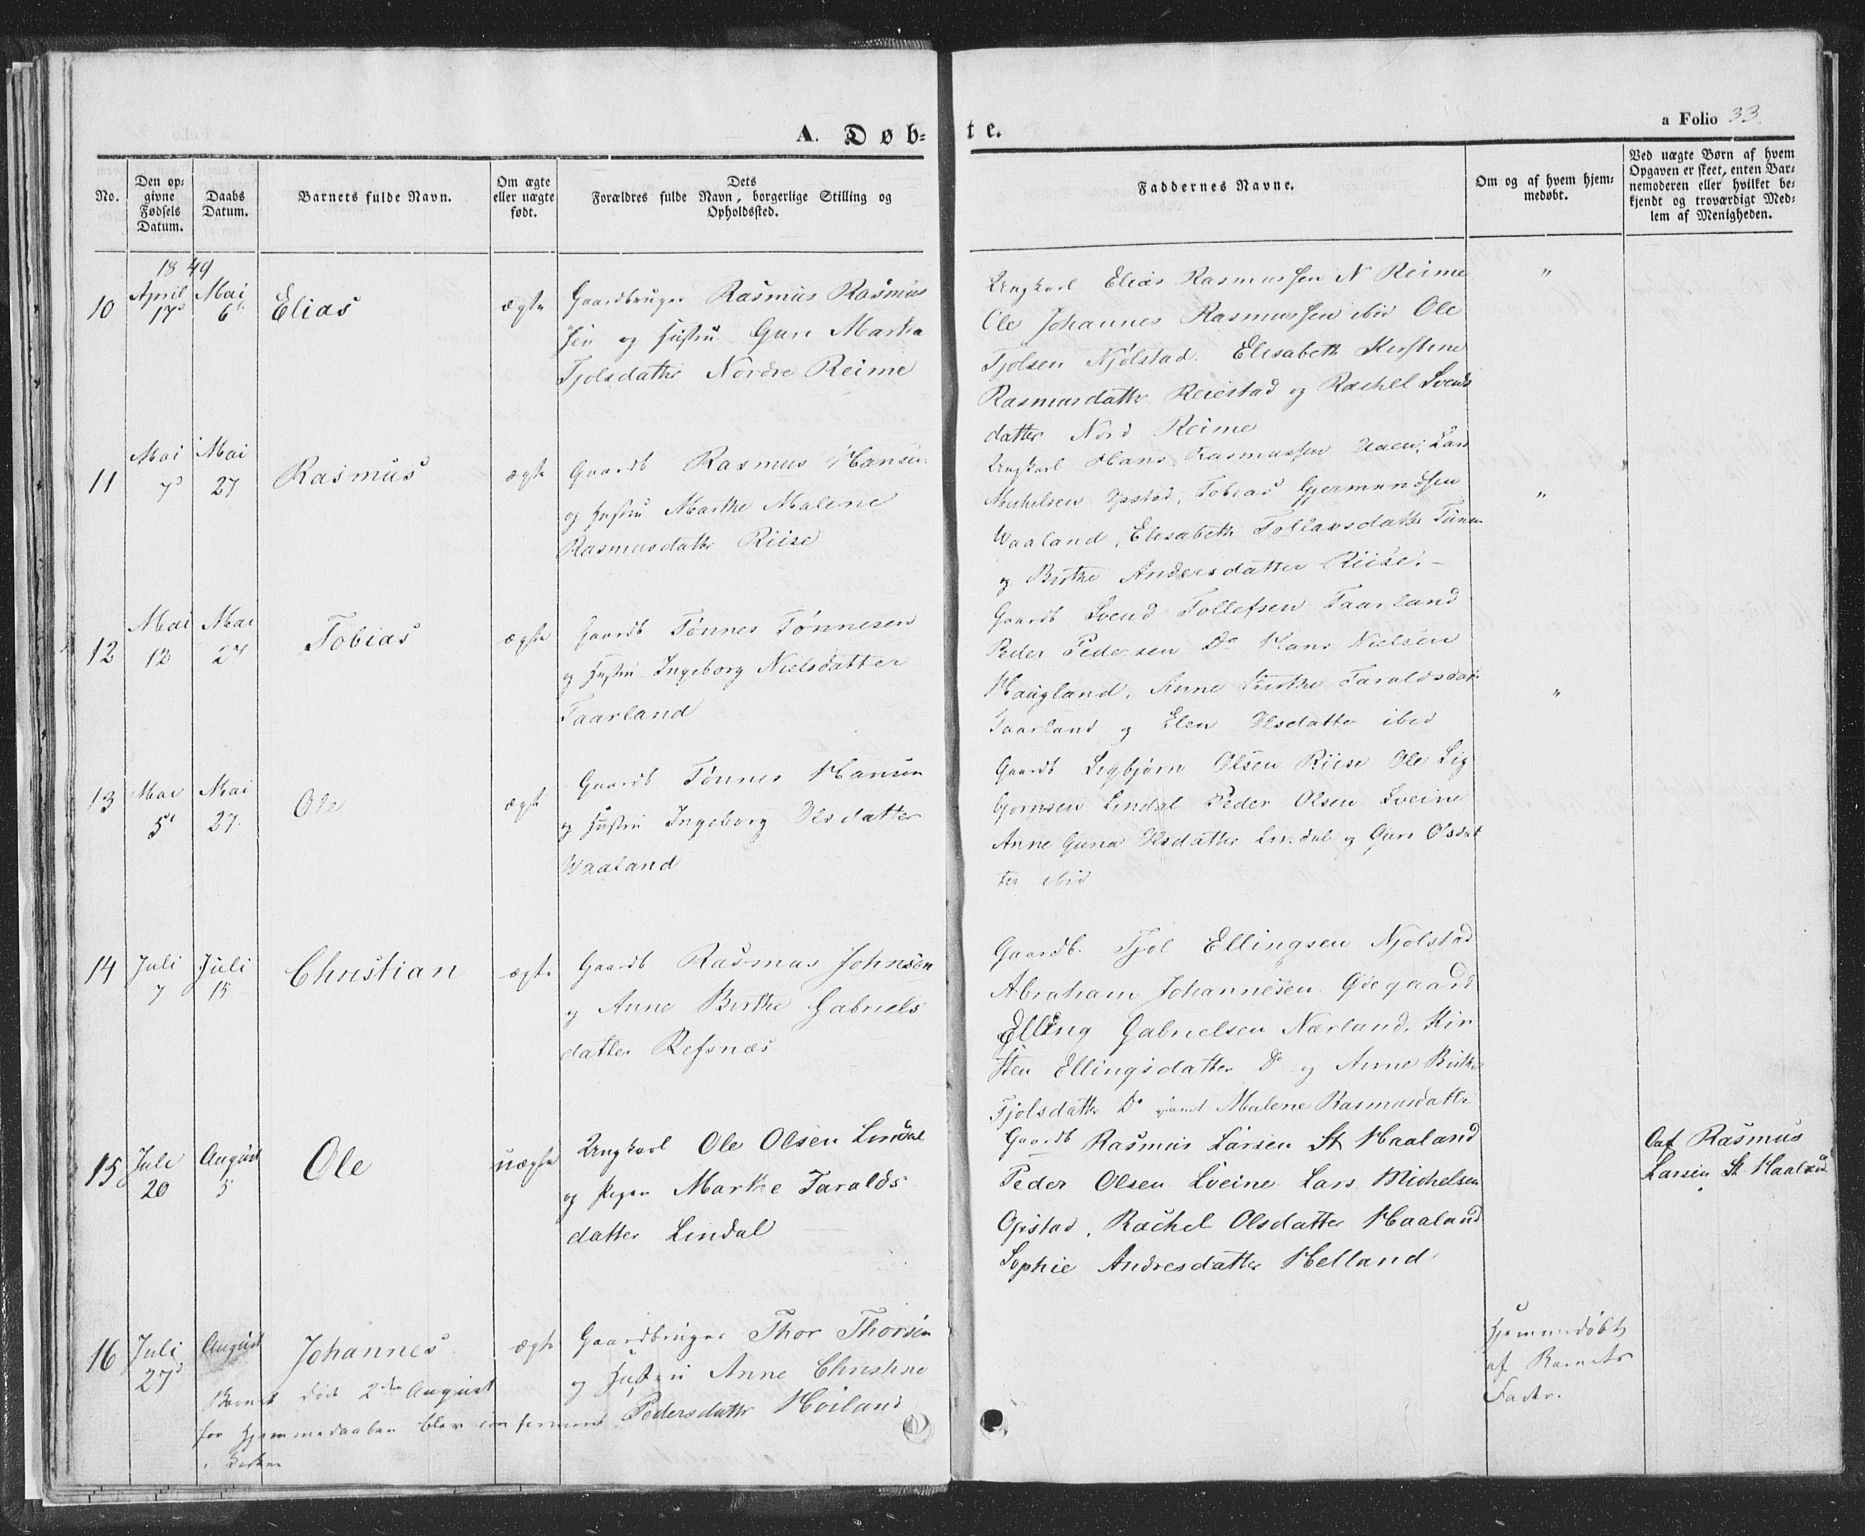 A. Døb-
te.
a Folio 33.
No.
Den op-
givne
Fødsels
Datum.
Daabs
Datum.
Barnets fulde Navn.
Om ægte
eller uægte
født.
Dets
Forældres fulde Navn, borgerlige Stilling og
Opholdssted.
Faddernes Navne.
Om og af hvem hjem-
medøbt.
Ved uægte Børn af hvem
Opgaven er skeet, enten Bar-
nemoderen eller hvilket be-
kjendt og troværdigt Med-
lem af Menigheden.
1849
10
April
17d
Mai
6t
Elias
ægte
Gaardbruger Rasmus Rasmus
sen og Hustru Guri Martha
Tjolsdatter Nordre Reime
Ungkarl Elias Rasmussen N Reime
Ole Johannes Rasmussen ibid Ole
Tjolsen Njølstad. Elisabeth Kirstine
Rasmusdatter Reiestad og Rachel Svends
datter Nord Reime
"
11
Mai
7d
Mai
27
Rasmus
ægte
Gaardb Rasmus Hansen
og Hustru Marthe Malene
Rasmusdatter Riise
Ungkarl Hans Rasmussen Lars
Michelsen Opstad, Tobias Gjermundsen
Waaland, Elisabeth Tollaksdatter
og Birthe Andersdatter Riise. -
"
12
Mai
12
Mai
27
Tobias
ægte
Gaardb Tønnes Tønnesen
og Hustru Ingeborg Nielsdatter
Taarland
Gaardb Svend Tollefsen Taarland
Peder Pedersen Do Hans Nielsen
Haugland, Anne Birthe Taraldsdat
Taarland og Elen Olsdatter ibid
"
13
Mai
5t
Mai
27.
Ole
ægte
Gaardb Tønnes Hansen
og Hustru Ingeborg Olsdatter
Waaland
Gaardb Sigbjørn Olsen Riise Ole Sig
bjørnsen Lindal Peder Olsen Sveine
Anne Guria Olsdatter Lindal og Guri Olsdat
ter ibid
14
Juli
7
Juli
15
Christian
ægte
Gaardb Rasmus Johnsen
og Anne Birthe Gabriels
datter Refsnæs
Gaardb. Tjol Ellingsen Njølstad
Abraham Johannesen Ødegaard
Elling Gabrielsen Nærland, Kir
sten Ellingsdatter Do og Anne Birthe
Tjolsdatter Do samt Malene Rasmusdatter
15
Juli
20
August
5
Ole
uægte
Ungkarl Ole Olsen Lindal
og Pigen Marthe Taralds
datter Lindal
Gaardb Rasmus Larsen St Haaland
Peder Olsen Sveine Lars Michelsen
Opstad, Rachel Olsdatter Haaland
Sophie Andresdatter Helland
Oaf Rasmus
Larsen St Haaland
16
Juli
27d
August
Johannes
ægte
Gaardbruger Thor Thorsen
og Hustru Anne Christine
Pedersdatter Høiland
Hjemmedøbt
af Barnets
Fader.
Barnet døde 2den August
før Hjemmedaaben blev confirmeret
i Kirken